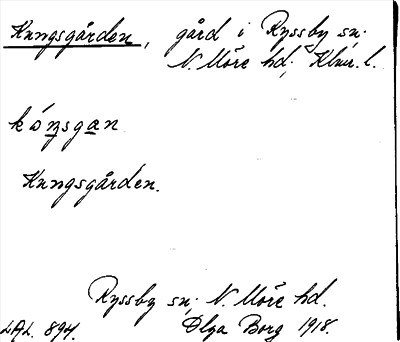 Kungsgården, gård i Ryssby sn.
N. Möre hd. Klmr. l.
kóngsgan
Kungsgården.
Ryssby sn, N. Möre hd.
LAL. 894. Olga Borg 1918.